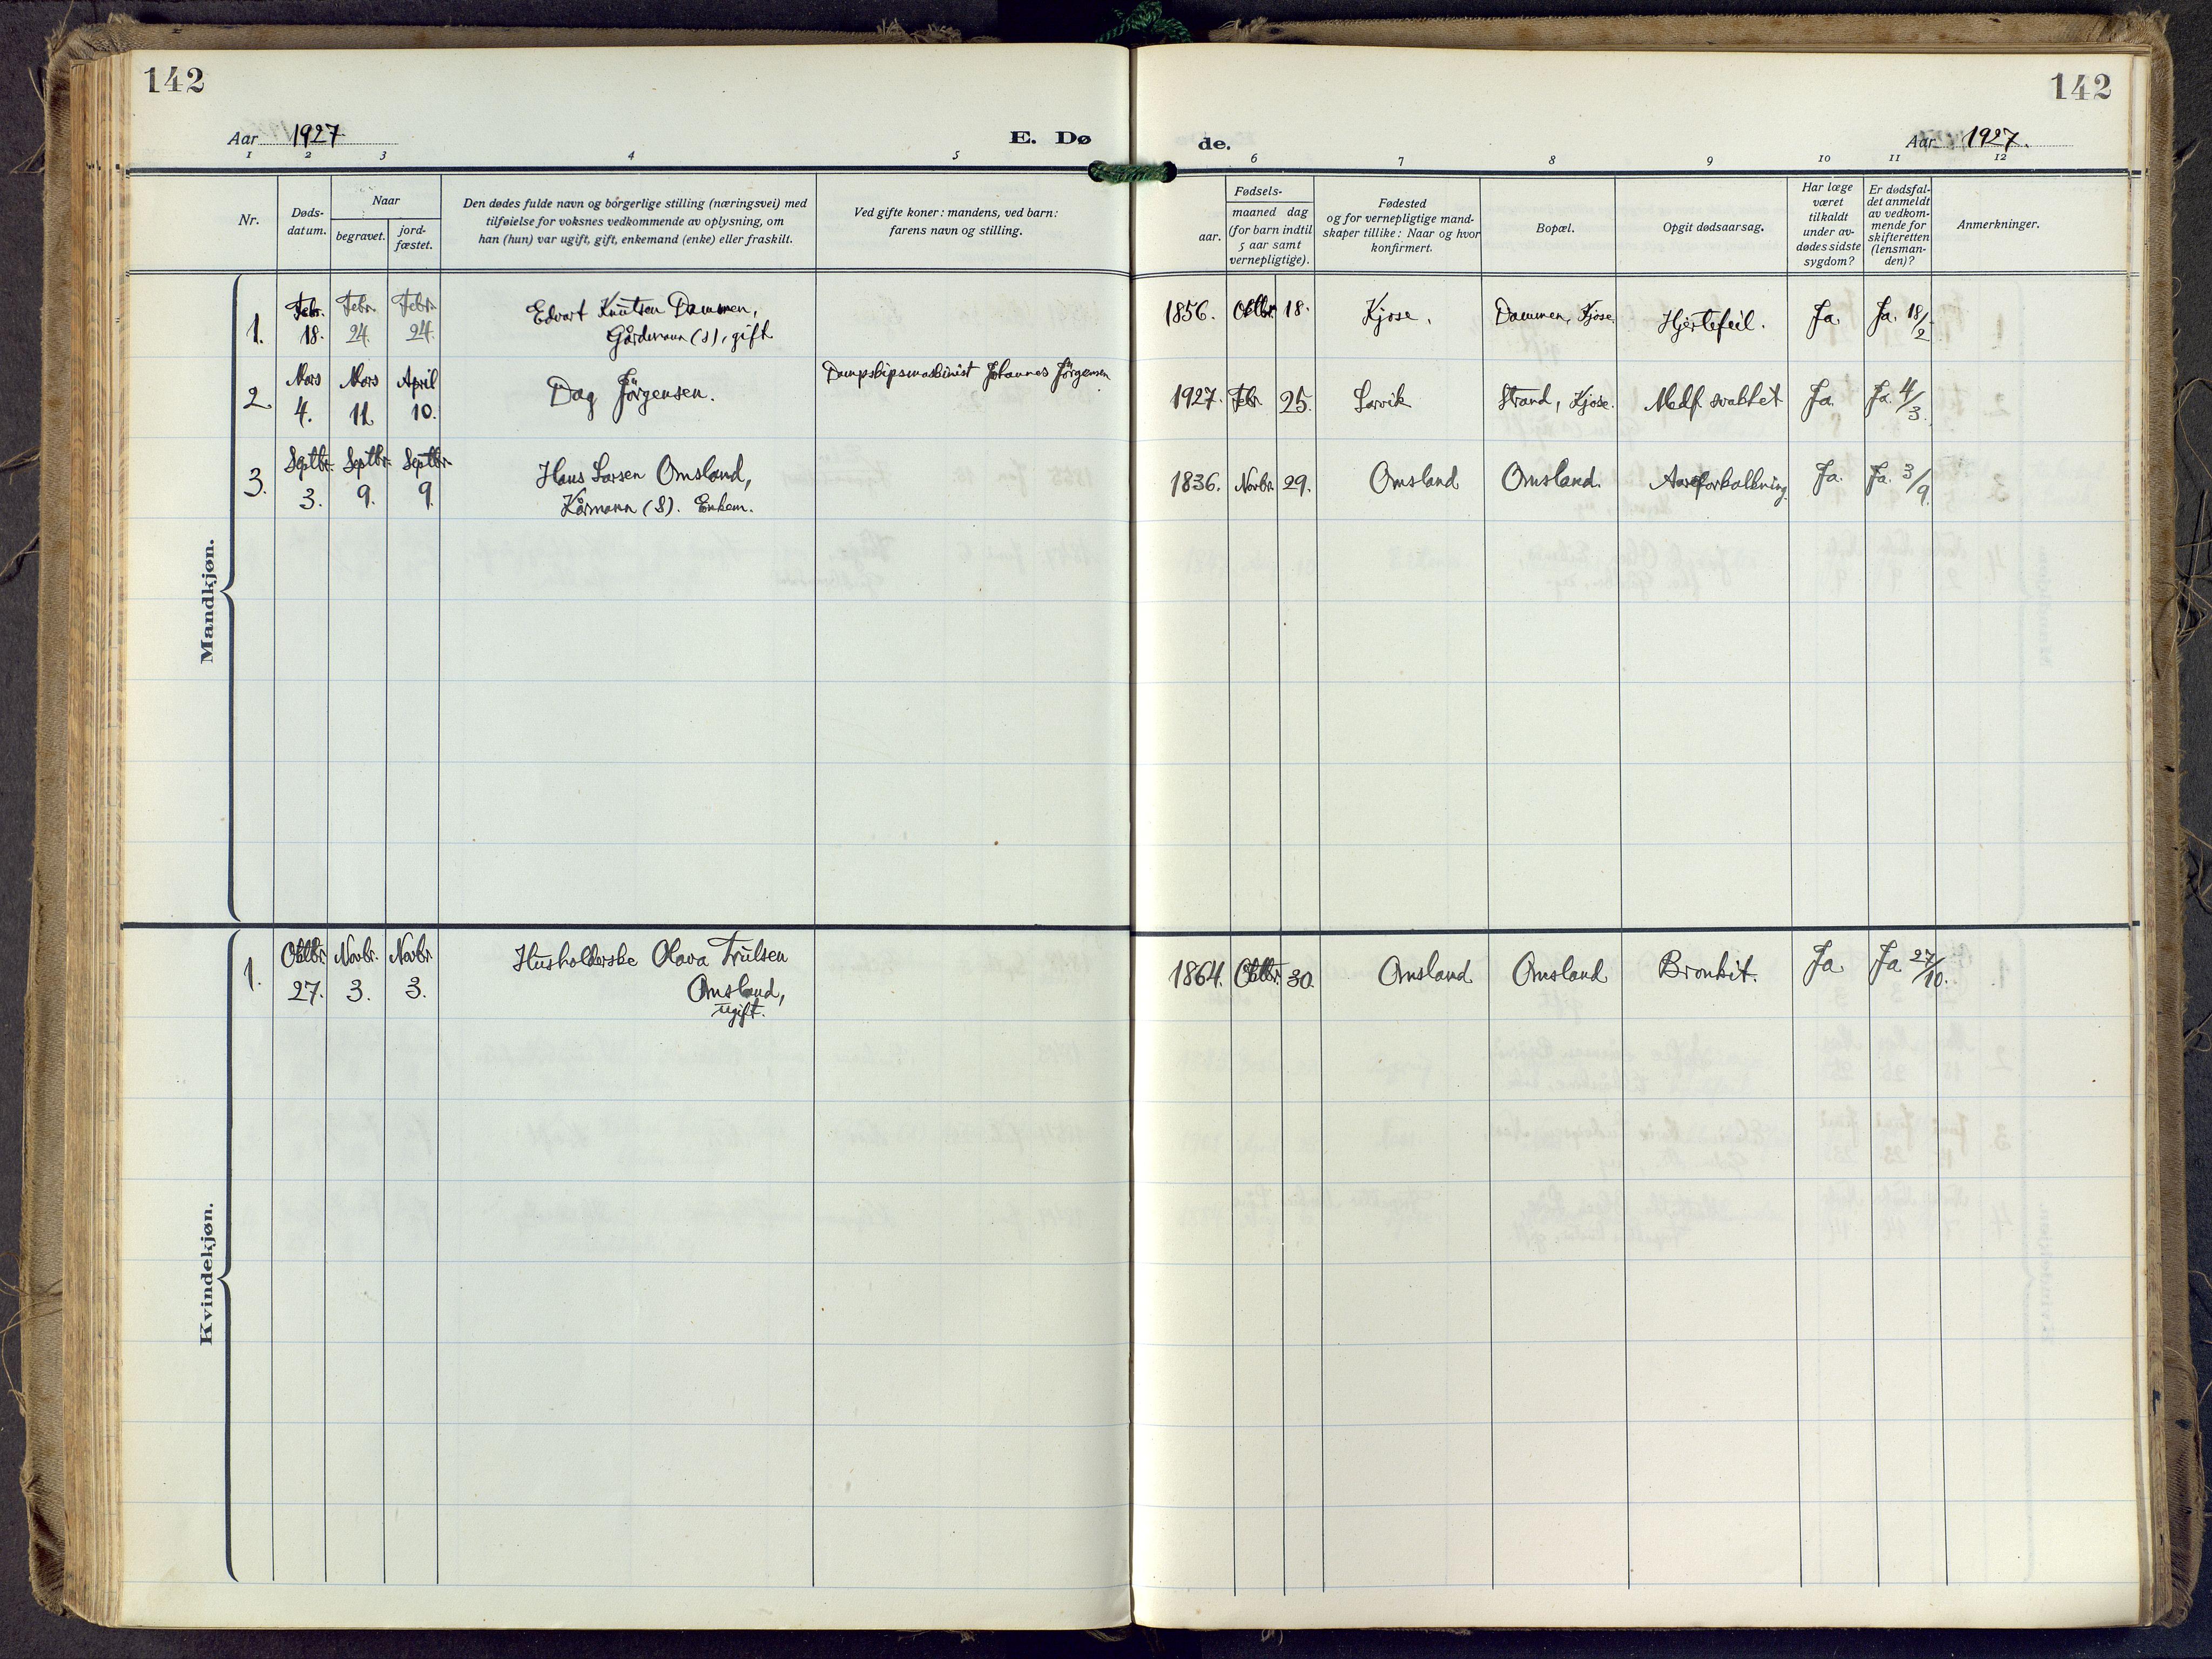 142
142
Aar 1927
E. Dø
de.
Aar 1927.
1 2 3 4 5 6 7 8 9 10 11 12
Nr.
Døds-
datum.
Naar
begravet.
jord-
fæstet.
Den dødes fulde navn og borgerlige stilling (næringsvei) med
tilføielse for voksnes vedkommende av oplysning, om
han (hun) var ugift, gift, enkemand (enke) eller fraskilt.
Ved gifte koner: mandens, ved barn:
farens navn og stilling.
Fødsels-
aar.
maaned dag
(for barn indtil
5 aar samt
vernepligtige).
Fødested
og for vernepligtige mand-
skaper tillike: Naar og hvor
konfirmert.
Bopæl.
Opgit dødsaarsag.
Har læge
været
tilkaldt
under av-
dødes sidste
sygdom?
Er dødsfal-
det anmeldt
av vedkom-
mende for
skifteretten
(lensman-
den)?
Anmerkninger.
Mandkjøn.
1. Febr. 18. Febr. 24. Febr. 24. Edvart Knutsen Dammen,
Gårdmann (S), gift
1856. Oktbr. 18. Kjose. Dammen, Kjose. Hjertefeil. Ja Ja 18/2.
2. Mars 4. Mars 11. April 10. Dag Jörgensen. Dampskipsmaskinist Johannes Jörgensen
1927. Febr. 25. Larvik Strand, Kjose. Medf. svakhet Ja. Ja. 4/3.
3. Septbr. 3. Septbr. 9. Septbr. 9. Hans Larsen Omsland,
Kårmann (S). Enkem.
1836. Novbr. 29. Omsland Omsland. Aareforkalkning. Ja. Ja. 3/9.
Kvindekjøn.
1. Oktbr. 27. Novbr. 3. Novbr. 3. Husholderske Olava Trulsen
Omsland,
ugift.
1864. Oktbr. 30. Omsland Omsland Bronkit. Ja. Ja 27/10.